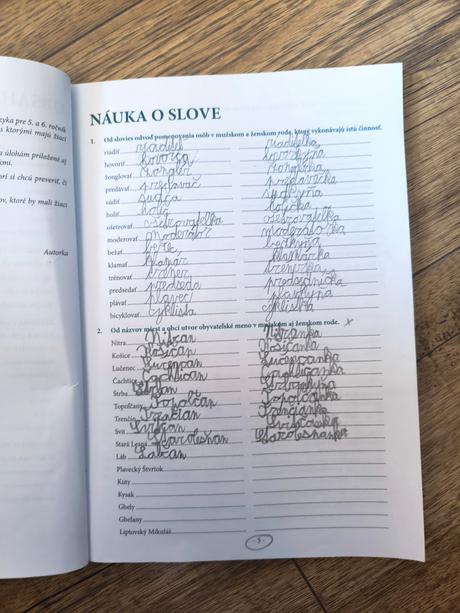 OBSAH
zyka pre 5. a 6. ročník
s ktorými majú žiaci
a úlohám priložené aj
mi.
orí si chcú preveriť, či
ov, ktoré by mali žiaci
Autorka
NÁUKA O SLOVE
1. Od slovies odvoď pomenovania osôb v mužskom a ženskom rode, ktoré vykonávajú istú činnosť.
riadiť riaditeľ riaditeľka
hovoriť hovorca hovorkyňa
žonglovať žonglér žonglérka
predávať predavač predavačka
súdiť sudca sudkyňa
holiť holič holička
ošetrovať ošetrovateľka ošetrovateľka
moderovať moderátor moderátorka
bežať bežec bežkyňa
klamať klamár klamárka
trénovať tréner trénerka
predsedať predseda predsedníčka
plávať plavec plavkyňa
bicyklovať cyklista cyklistka
2. Od názvov miest a obcí utvor obyvateľské meno v mužskom aj ženskom rode. x
Nitra Nitran Nitranka
Košice Košičan Košičanka
Lučenec Lučenčan Lučenčanka
Čachtice
Štrba
Topoľčany Topolčan Topolčanka
Trenčín Trenčan Trenčanka
Svit Svitčan Svitčanka
Stará Lesná Starolesňan Starolesňanka
Láb Labčan
Plavecký Štvrtok
Kúty
Kysak
Gbely
Gbeľany
Liptovský Mikuláš
- 5 -